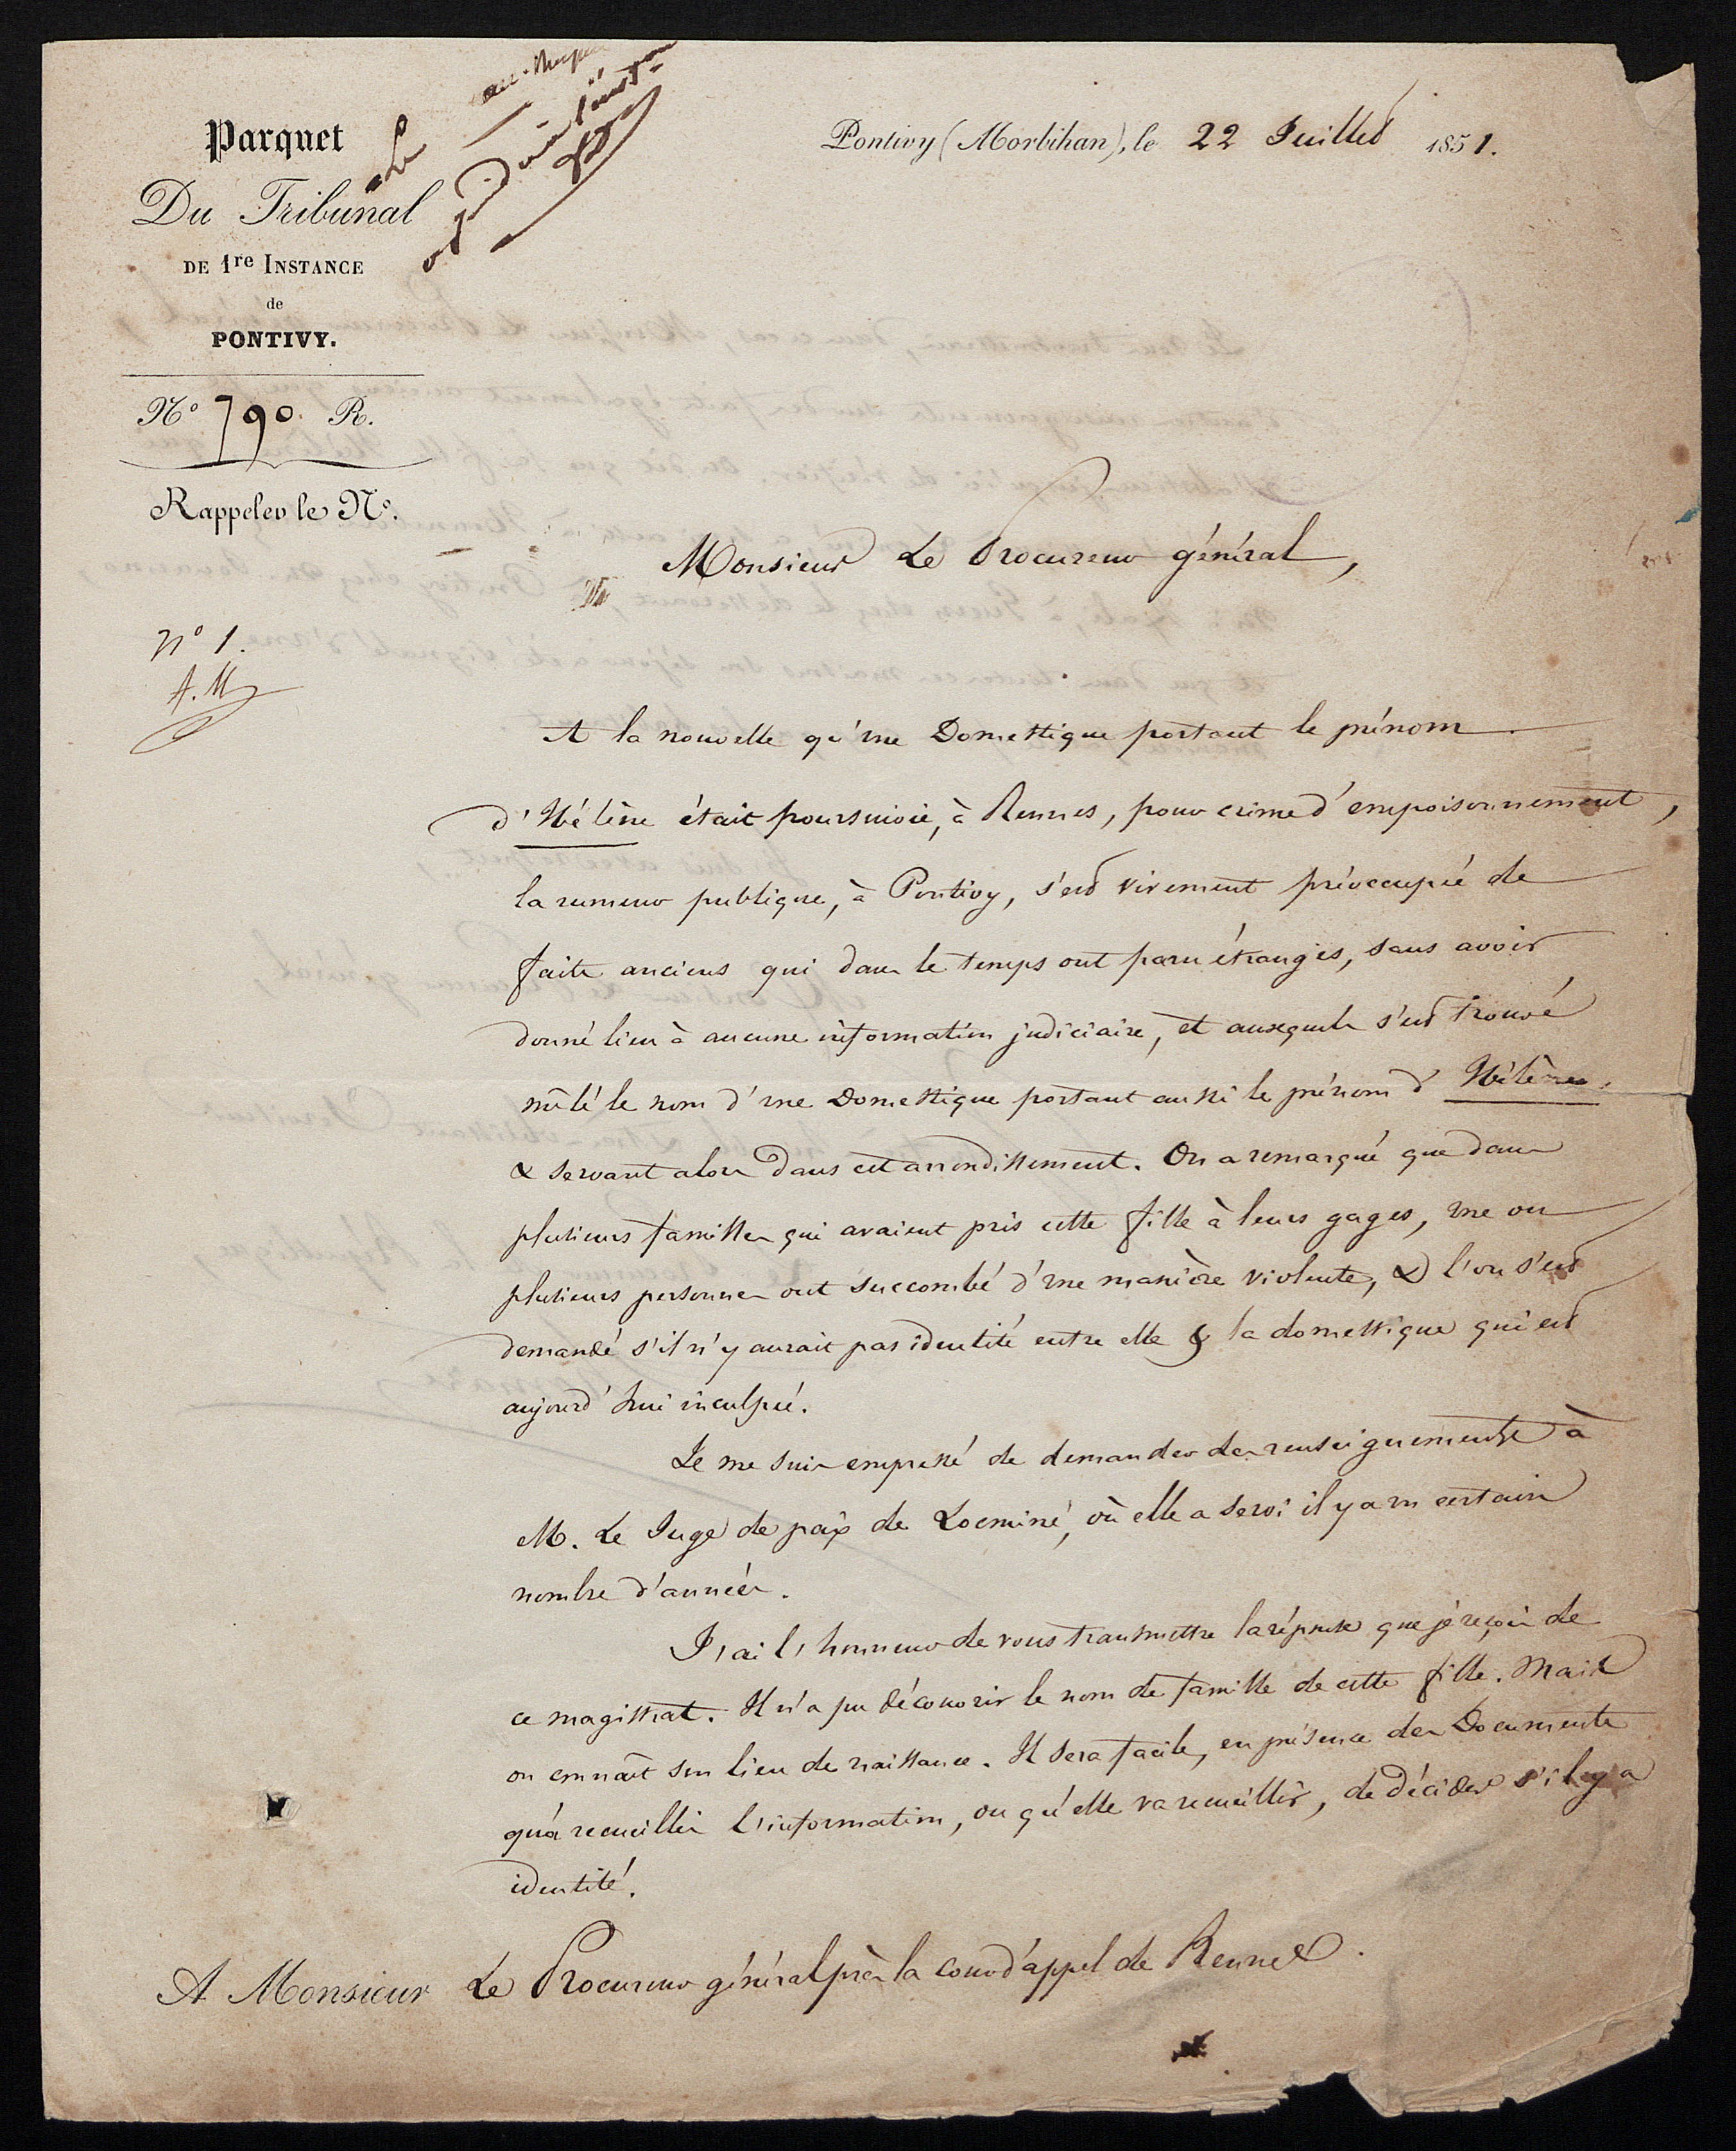 Parquet
Du Tribunal
DE 1re INSTANCE
de
PONTIVY.
N° 790. R.
Rappeler le N°.
n° 1.
A. M
Pontivy (Morbihan), le 22 Juillet 1851.
Monsieur Le Procureur général,
A la nouvelle qu'une Domestique portant le prénom
d'Hélène était poursuivie, à Rennes, pour crime d'empoisonnement,
la rumeur publique, à Pontivy, s'est vivement préoccupée de
faits anciens qui dans le temps ont paru étranges, sans avoir
donné lieu à aucune information judiciaire, et auxquels s'est trouvé
mêlé le nom d'une Domestique portant aussi le prénom d'Hélène
& servant alors dans cet arrondissement. On a remarqué que dans
plusieurs familles qui avaient pris cette fille à leurs gages, une ou
plusieurs personnes ont succombé d'une manière violente, & l'on s'est
demandé s'il n'y aurait pas identité entre elle & la domestique qui est
aujourd'hui inculpée.
Je me suis empressé de demander des renseignements à
M. Le Juge de paix de Locminé, où elle a servi il y a un certain
nombre d'années.
J'ai l'honneur de vous transmettre la réponse que je reçois de
ce magistrat. Il n'a pu découvrir le nom de famille de cette fille. Mais
on connaît son lieu de naissance. Il sera facile, en présence des Documents
qu'a recueillis l'information, ou qu'elle va recueillir, de décider s'il y a
identité.
A Monsieur Le Procureur général près la cour d'appel de Rennes.